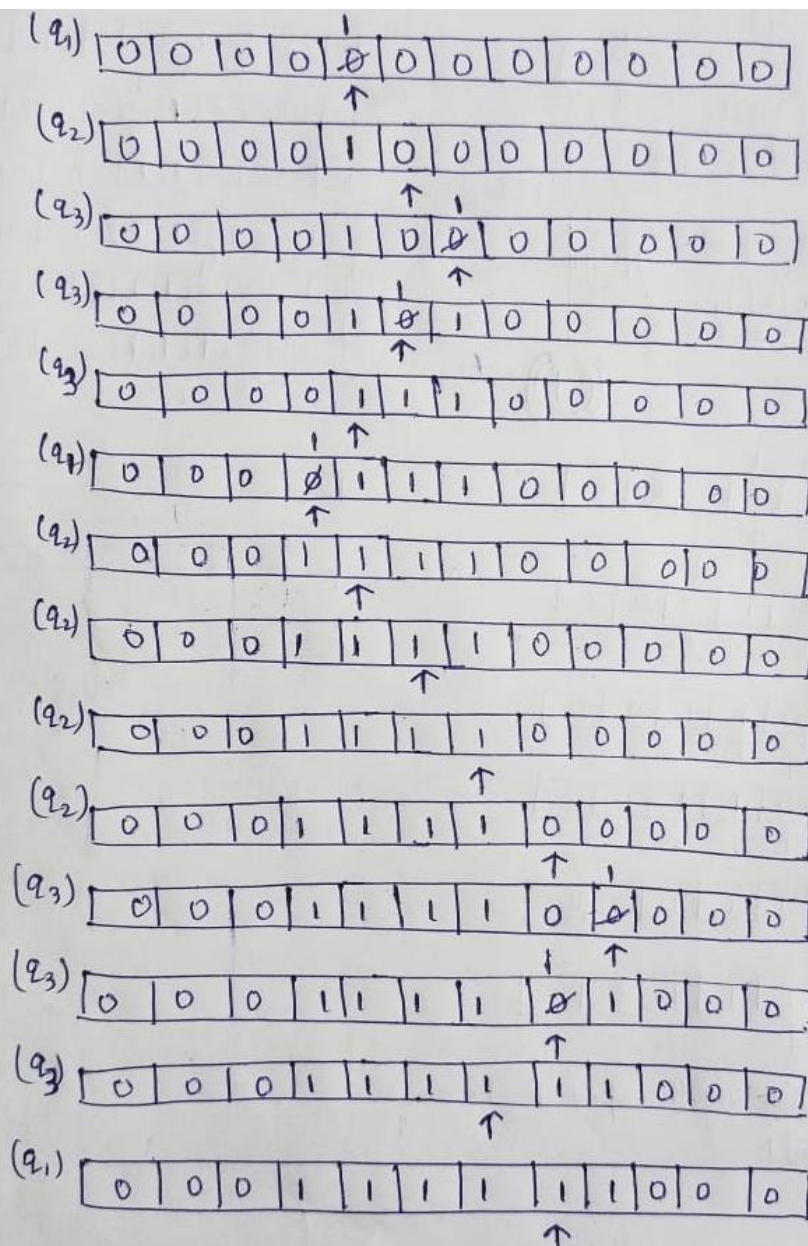 1
(q₁) 0 0 0 0 0̸ 0 0 0 0 0 0 0
↑
(q₂) 0 0 0 0 1 0 0 0 0 0 0 0
↑ 1
(q₃) 0 0 0 0 1 0 0̸ 0 0 0 0 0
1 ↑
(q₃) 0 0 0 0 1 0̸ 1 0 0 0 0 0
↑
(q₃) 0 0 0 0 1 1 1 0 0 0 0 0
1 ↑
(q₁) 0 0 0 0̸ 1 1 1 0 0 0 0 0
↑
(q₂) 0 0 0 1 1 1 1 0 0 0 0 0
↑
(q₂) 0 0 0 1 1 1 1 0 0 0 0 0
↑
(q₂) 0 0 0 1 1 1 1 0 0 0 0 0
↑
(q₂) 0 0 0 1 1 1 1 0 0 0 0 0
↑ 1
(q₃) 0 0 0 1 1 1 1 0 0̸ 0 0 0
1 ↑
(q₃) 0 0 0 1 1 1 1 0̸ 1 0 0 0
↑
(q₃) 0 0 0 1 1 1 1 1 1 0 0 0
↑
(q₁) 0 0 0 1 1 1 1 1 1 0 0 0
↑